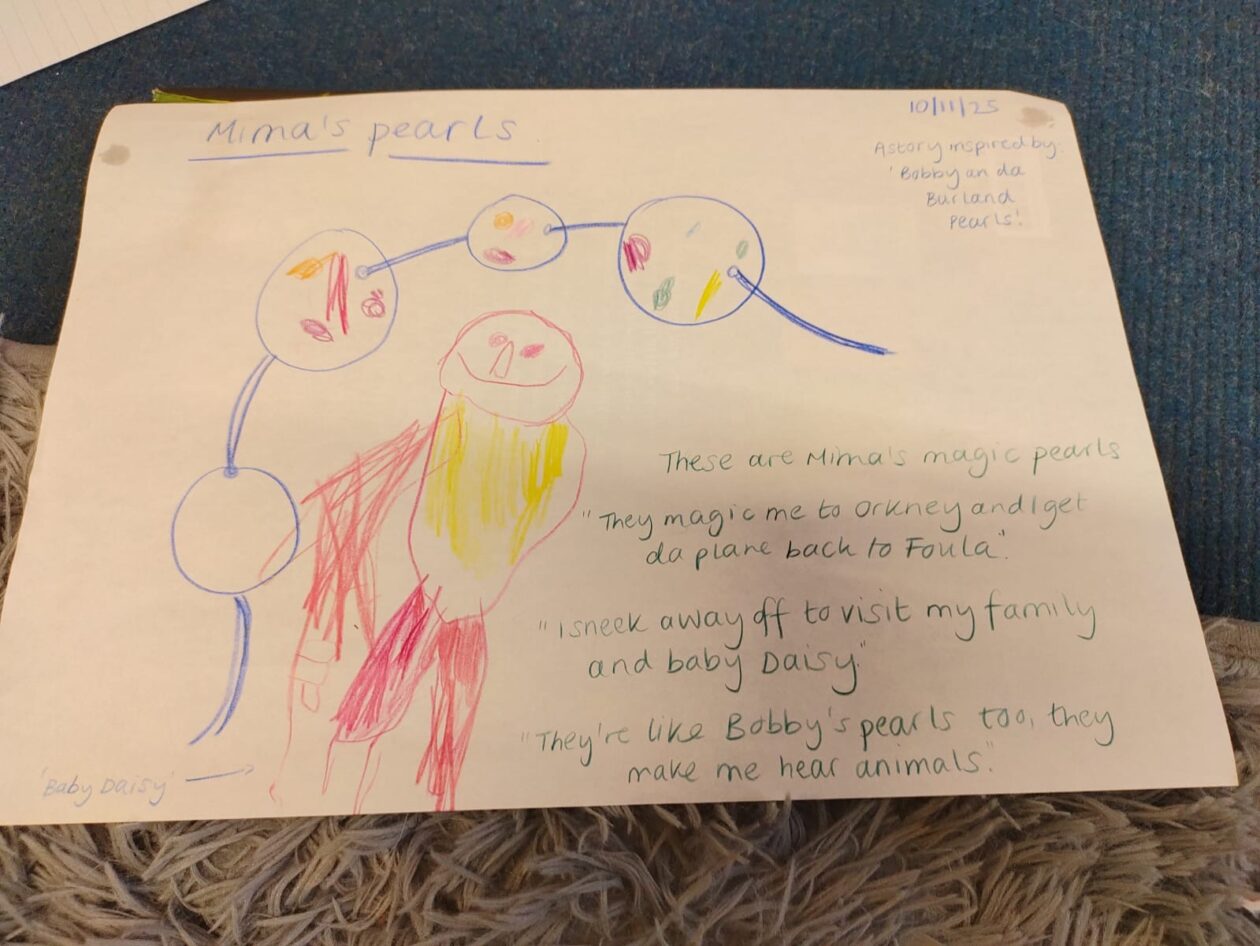 Mima's pearls
10/11/25
A story inspired by:
'Bobby an da
Burland
Pearls!'
These are Mima's magic pearls
"They magic me to Orkney and I get
da plane back to Foula".
"I sneek away off to visit my family
and baby Daisy"
"They're like Bobby's pearls too, they
make me hear animals."
'Baby Daisy'